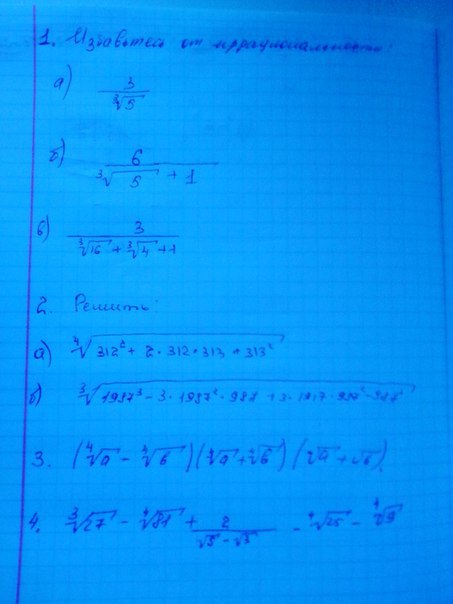 1. Избавьтесь от иррациональности:
а) 3/∛5
б) 6/(∛5 + 1)
в) 3/(∛16 + ∛4 + 1)
2. Решить:
а) ∜(312² + 2·312·313 + 313²)
б) ∛(1987³ − 3·1987²·987 + 3·1987·987² − 987³)
3. (∜a − ∜b)(∜a + ∜b)(√a + √b)
4. ∛27 − ∜81 + 2/(√5 − √3) − ∜25 − ∜9